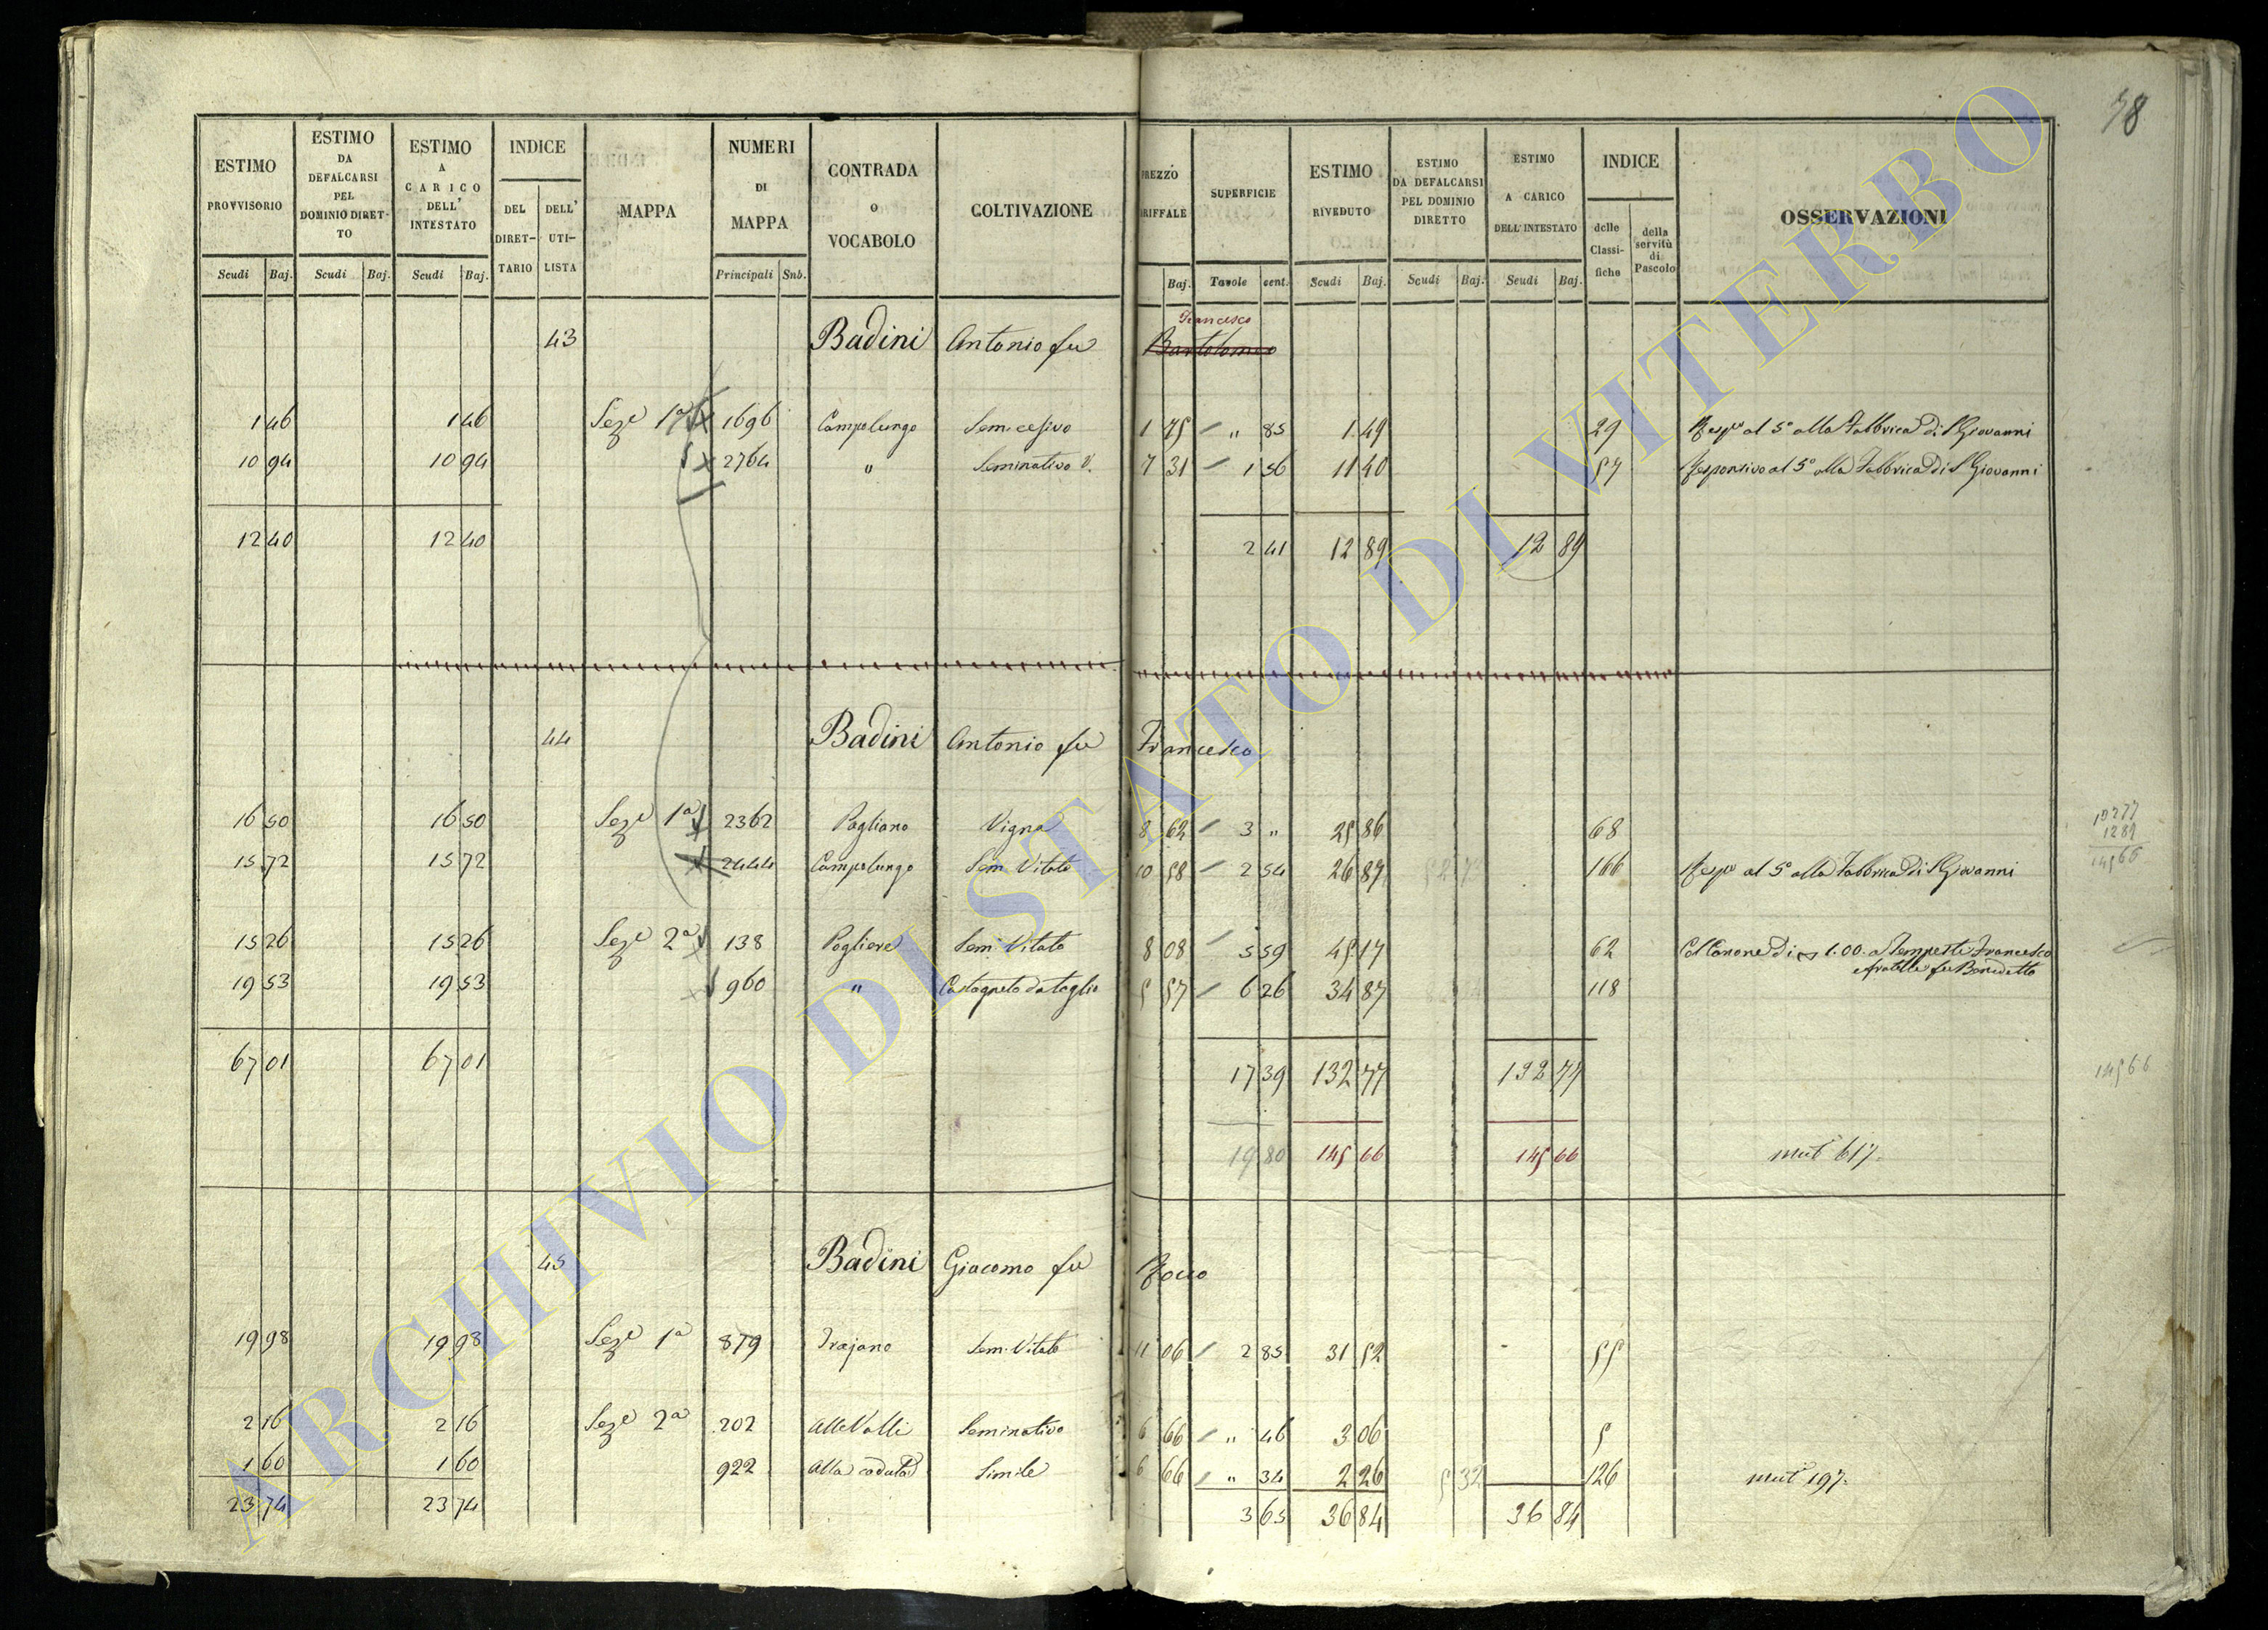 78
ESTIMO PROVVISORIO
ESTIMO DA DEFALCARSI PEL DOMINIO DIRET-TO
ESTIMO A CARICO DELL' INTESTATO
INDICE
DEL DIRET-TARIO
DELL' UTI-LISTA
MAPPA
NUMERI DI MAPPA
CONTRADA O VOCABOLO
COLTIVAZIONE
PREZZO TARIFFALE
SUPERFICIE
ESTIMO RIVEDUTO
ESTIMO DA DEFALCARSI PEL DOMINIO DIRETTO
ESTIMO A CARICO DELL'INTESTATO
INDICE
delle Classi-fiche
della servitù di Pascolo
OSSERVAZIONI
Scudi Baj. Scudi Baj. Scudi Baj. Principali Snb. Baj. Tavole cent. Scudi Baj. Scudi Baj. Scudi Baj.
Francesco
43 Badini Antonio fu Bartolomeo
1 46 1 46 Seze 1a 1696 Campolungo Sem. cesivo 1 75 " 85 1 49 29 Respo al 5o alla Fabbrica di S Giovanni
10 94 10 94 2764 " Seminativo V. 7 31 1 56 11 40 57 Responsivo al 5o alla Fabbrica di S Giovanni
12 40 12 40 2 41 12 89 12 89
44 Badini Antonio fu Francesco
16 50 16 50 Seze 1a 2362 Pogliano Vigna 8 62 3 " 25 86 68
13277
1289
14566
15 72 15 72 2444 Campolungo Sem. Vitato 10 58 2 54 26 87 52 73 166 Respo al 5o alla Fabbrica di S Giovanni
15 26 15 26 Seze 2a 138 Pogliere Sem. Vitato 8 08 5 59 45 17 62 Col Canone di 1.00 a Tempesti Francesco
e fratelli fu Benedetto
19 53 19 53 960 " Castagneto da taglio 5 57 6 26 34 87 118
67 01 67 01 17 39 132 77 132 77
14566
19 80 145 66 145 66 mut 617.
45 Badini Giacomo fu Rocco
19 98 19 98 Seze 1a 879 Trajano Sem. Vitato 11 06 2 85 31 52 55
2 16 2 16 Seze 2a 202 Alle Valli Seminativo 6 66 " 46 3 06 5
1 60 1 60 922 Alla caduta Simile 6 66 " 34 2 26 5 32 126 mut 197.
23 74 23 74 3 65 36 84 36 84
ARCHIVIO DI STATO DI VITERBO